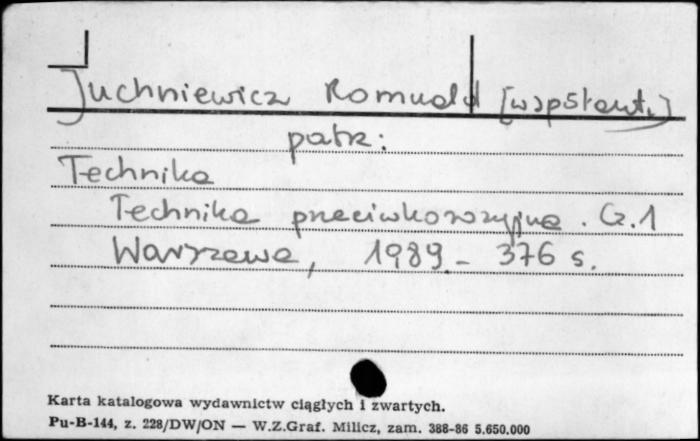 Juchniewicz Romuald [współaut.]
patrz:
Technika
Technika przeciwkorozyjna. Cz. 1
Warszawa, 1989 - 376 s.
Karta katalogowa wydawnictw ciągłych i zwartych.
Pu-B-144, z. 228/DW/ON — W.Z.Graf. Milicz, zam. 388-86 5.650.000